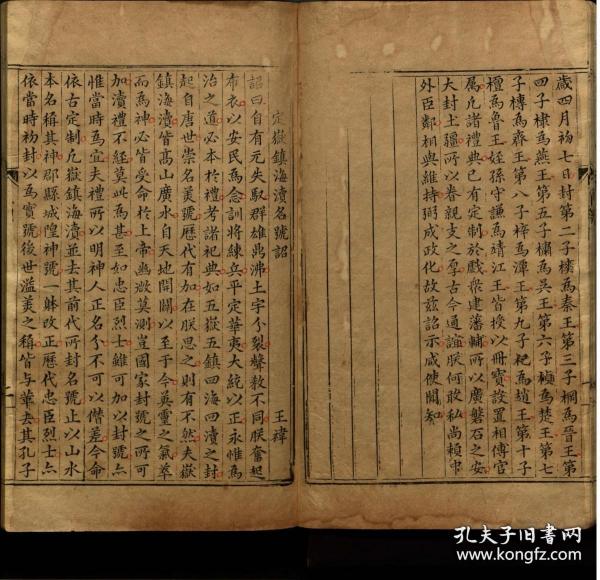 歲四月初七日封第二子樉為秦王第三子棡為晉王第
四子棣為燕王第五子橚為吳王第六子楨為楚王第七
子榑為齊王第八子梓為潭王第九子杞為趙王第十子
檀為魯王姪孫守謙為靖江王皆授以冊寶設置相傅官
属凡諸禮典已有定制於戲衆建藩輔所以廣磐石之安
大封土疆所以眷親支之厚古今通誼朕何敢私尚賴中
外臣鄰相與維持弼成政化故茲詔示咸使聞知
定嶽鎮海瀆名號詔
王禕
詔曰自有元失馭群雄鼎沸土宇分裂聲教不同朕奮起
布衣以安民為念訓將練兵平定華夷大統以正永惟為
治之道必本於禮考諸祀典如五嶽五鎮四海四瀆之封
起自唐世崇名美號歷代有加在朕思之則有不然夫嶽
鎮海瀆皆髙山廣水自天地開闢以至于今英靈之氣萃
而為神必皆受命於上帝幽微莫測豈國家封號之所可
加瀆禮不經莫此為甚至如忠臣烈士雖可加以封號亦
惟當時為宜夫禮所以明神人正名分不可以僭差今命
依古定制凡嶽鎮海瀆並去其前代所封名號止以山水
本名稱其神郡縣城隍神號一躰改正歷代忠臣烈士亦
依當時初封以為實號後世溢美之稱皆与革去其孔子
孔夫子旧书网
www.kongfz.com